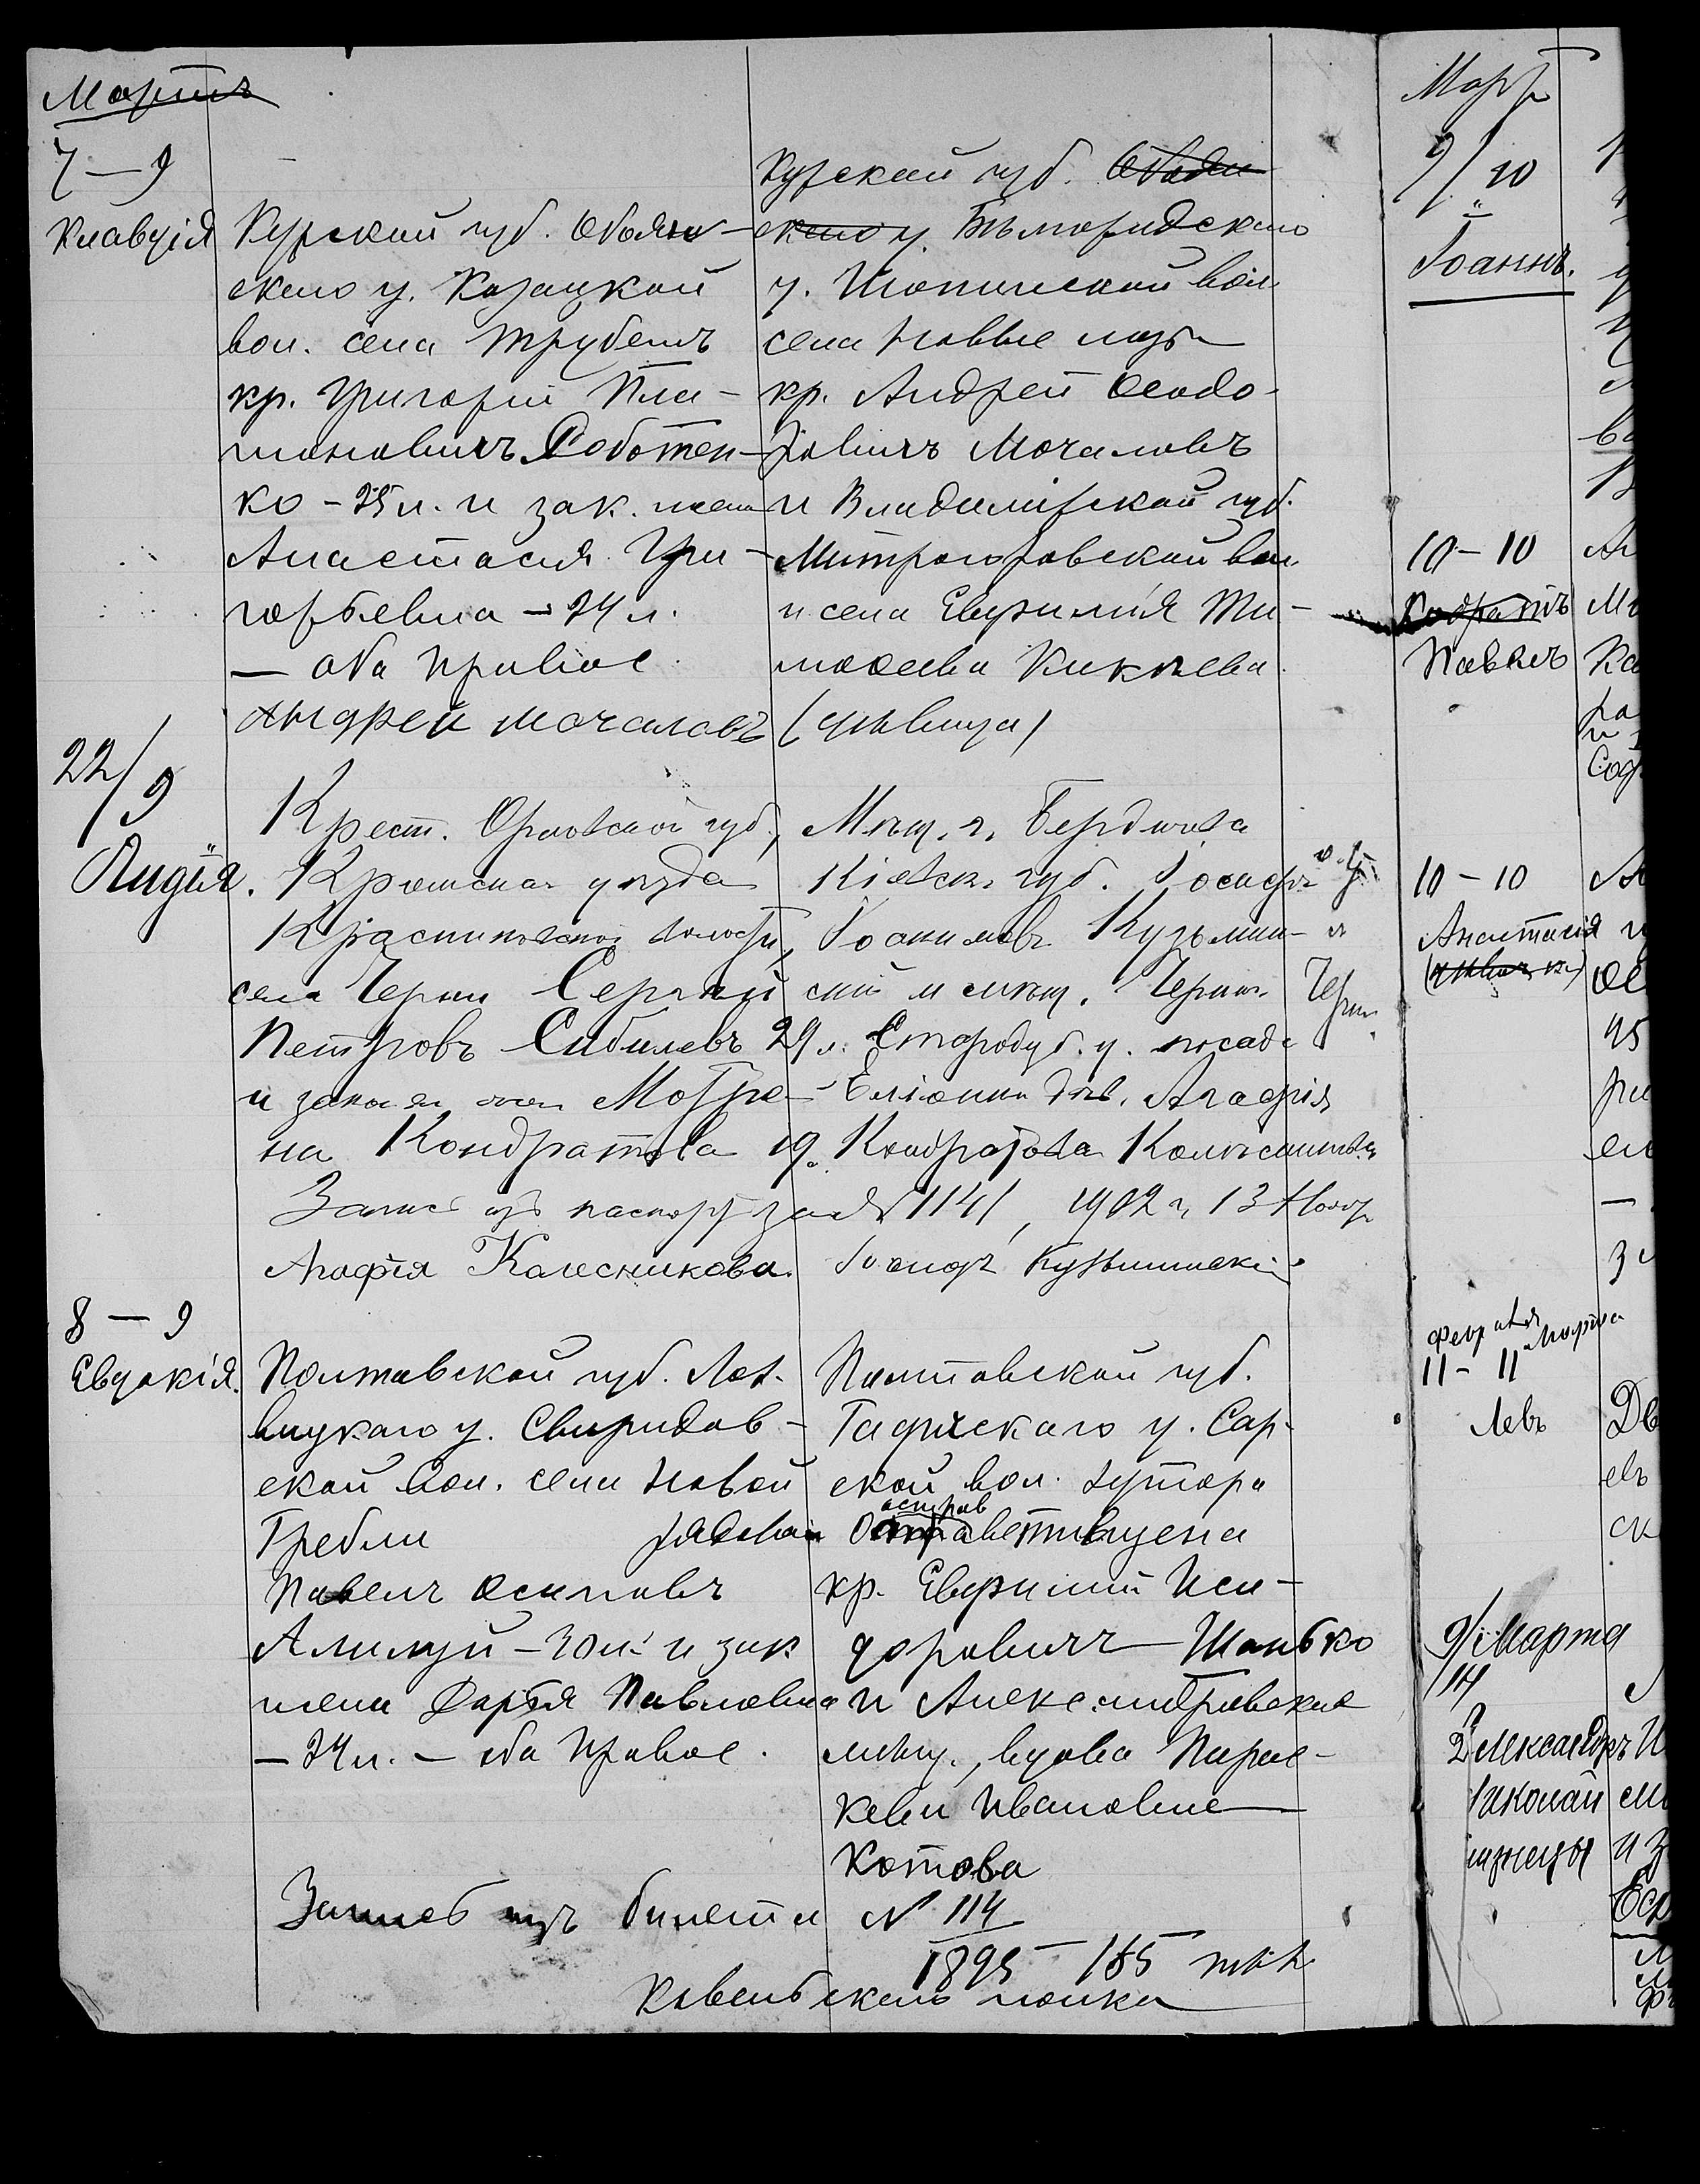 Мартъ
7 — 9
Клавдія
Курской губ. Обоян-
скаго у. Казацкой
вол. села Трубежъ
кр. Григорій Пла-
тоновичъ Работен-
ко - 25 л. и зак. жена
Анастасія Гри-
горьевна — 24 л.
— оба правос.
Андрей Мочаловъ
Курской губ. Обоян
скаго у. Бѣлгородскаго
у. Шопинской вол.
села Новые лозы
кр. Андрей Ѳеодо-
ровичъ Мочаловъ
и Владимірской губ.
Митрогоровской вол.
и села Евфимія Ти-
моѳеева Кикнева
(дѣвица)
22/9
Лидія.
Крест. Орловской губ.,
уѣзда
волости,
села Черни Сергѣй
Петровъ Сибилевъ 29 л.
и законная жена Матре-
на Кондратова 19.
Мѣщ. г. Бердичева
Кіевск. губ. Іосифъ
Іоакимовъ Кузьмин-
скій и мѣщ. Черниг.
Стародуб. у. посада
Еліонки дѣв. Агафія
Кондратова Колѣсникова
Запись изъ паспорт за № 1141, 1902 г. 13 Ноябр
Агафія Калесникова. Іосифъ Кузьминскій
8 — 9
Евдокія.
Полтавской губ. Лох-
вицкаго у. Свиридов-
ской вол. села Новой
Гребли рядовой
Павелъ Осиповъ
Алилуй — 30 л. и зак
жена Дарья Павловна
— 24 л. — оба правос.
Полтавской губ.
Гадячскаго у. Сар-
ской вол. хутора
кр. Евфимій Иси-
доровичъ Шанько
и Александровская
мѣщ., вдова Парас-
кева Ивановна
Котова
Запись изъ билета № 114
1895 — 155 пѣх.
скаго полка
Март
9/10
"
Іоаннъ.
10 — 10
Кодратъ
Павелъ
10 — 10
Анастасія
Февраля Марта
11 - 11
Левъ
9/Марта
/14
2 Александръ
Николай